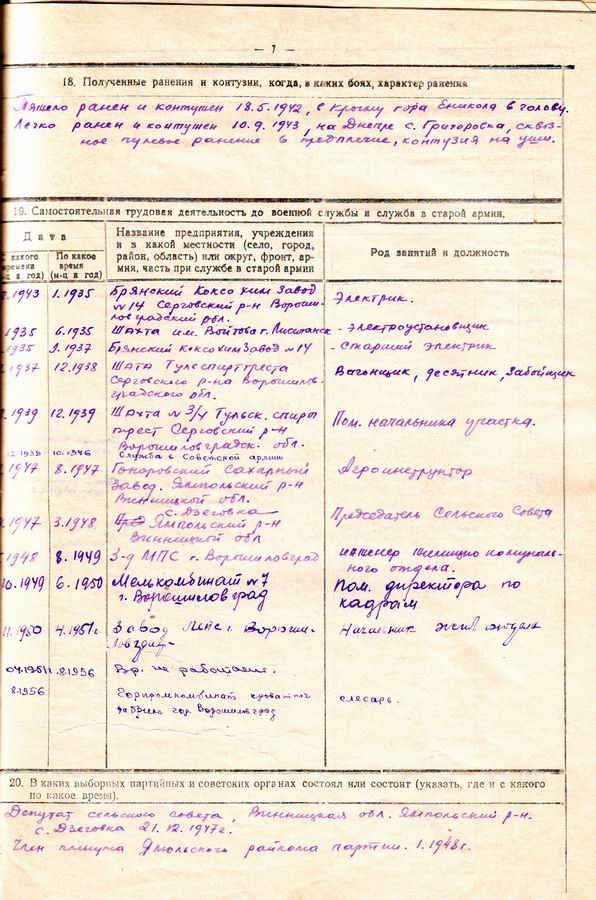 — 7 —
18. Полученные ранения и контузии, когда, в каких боях, характер ранения
Тяжело ранен и контужен 18.5.1942, в Крыму гора Еникола в голову.
Легко ранен и контужен 10.9.1943, на Днепре с. Григоровка, сквоз-
ное пулевое ранение в предплечие, контузия на уши.
19. Самостоятельная трудовая деятельность до военной службы и службы в старой армии.
Дата
какого времени (м-ц и год)
По какое время (м-ц и год)
Название предприятия, учреждения
и в какой местности (село, город,
район, область) или округ, фронт, ар-
мия, часть при службе в старой армии
Род занятий и должность
1943 1.1935 Брянский Коксохим Завод Электрик.
№ 14 Серговский р-н Вороши-
ловградский обл.
1935 6.1935 Шахта им. Войтова г. Лисичанск - Электроустановщик
1935 9.1937 Брянский коксохимзавод № 14 - старший электрик
1937 12.1938 Шахта Вагонщик, десятник, Забойщик
Серговского р-на Ворошилов-
градского обл.
1939 12.1939 Шахта № 3/4 Тульск. Пом. начальника участка.
трест Серговский р-н
Ворошиловградск. обл.
12.1939 10.1946 Служба в Советской армии
1947 8.1947 Гоноровский Сахарный Агроинструктор
Завод. Ямпольский р-н
Винницкой обл.
с. Дзеговка Председатель Сельского Совета
1947 3.1948 Ямпольский р-н
Винницкой обл
1948 8.1949 З-д МПС г. Ворошиловград инженер жилищно комуналь-
ного отдела.
10.1949 6.1950 Мелькомбинат № 7 Пом. директора по
г. Ворошиловград кадрам
11.1950 4.1951г Завод МПС г. Вороши- Начальник жил отдела
04.1951г. 8.1956 Вр. не работает.
8.1956 Горпромкомбинат кроватная слесарь.
фабрика гор. Ворошиловград
20. В каких выборных партийных и советских органах состоял или состоит (указать, где и с какого
по какое время).
Депутат сельского совета, Винницкая обл. Ямпольский р-н.
с. Дзеговка 21.12.1947г.
Член пленума райкома партии. 1.1948г.